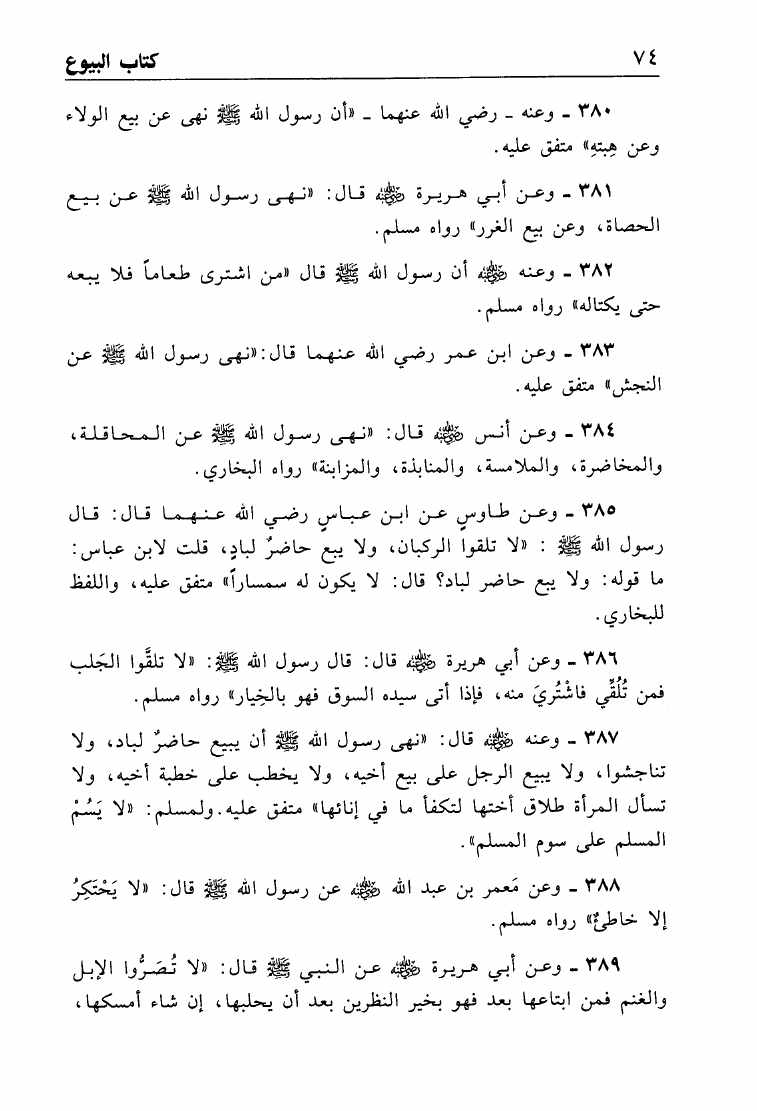 ٧٤ كتاب البيوع
٣٨٠ ـ وعنه ـ رضي الله عنهما ـ «أن رسول الله ﷺ نهى عن بيع الولاء
وعن هِبتهِ» متفق عليه.
٣٨١ ـ وعن أبي هريرة رضي الله عنه قال: «نهى رسول الله ﷺ عن بيع
الحصاة، وعن بيع الغرر» رواه مسلم.
٣٨٢ ـ وعنه رضي الله عنه أن رسول الله ﷺ قال «من اشترى طعاماً فلا يبعه
حتى يكتاله» رواه مسلم.
٣٨٣ ـ وعن ابن عمر رضي الله عنهما قال: «نهى رسول الله ﷺ عن
النجش» متفق عليه.
٣٨٤ ـ وعن أنس رضي الله عنه قال: «نهى رسول الله ﷺ عن المحاقلة،
والمخاضرة، والملامسة، والمنابذة، والمزابنة» رواه البخاري.
٣٨٥ ـ وعن طاوسٍ عن ابن عباسٍ رضي الله عنهما قال: قال
رسول الله ﷺ : «لا تلقوا الركبان، ولا يبع حاضرٌ لبادٍ، قلت لابن عباس:
ما قوله: ولا يبع حاضر لباد؟ قال: لا يكون له سمساراً» متفق عليه، واللفظ
للبخاري.
٣٨٦ ـ وعن أبي هريرة رضي الله عنه قال: قال رسول الله ﷺ: «لا تلقَّوا الجَلب
فمن تُلُقِّي فاشْتُريَ منه، فإذا أتى سيده السوق فهو بالخِيار» رواه مسلم.
٣٨٧ ـ وعنه رضي الله عنه قال: «نهى رسول الله ﷺ أن يبيع حاضرٌ لباد، ولا
تناجشوا، ولا يبيع الرجل على بيع أخيه، ولا يخطب على خطبة أخيه، ولا
تسأل المرأة طلاق أختها لتكفأ ما في إنائها» متفق عليه. ولمسلم: «لا يَسُمْ
المسلم على سوم المسلم».
٣٨٨ ـ وعن مَعمر بن عبد الله رضي الله عنه عن رسول الله ﷺ قال: «لا يَحْتَكِرُ
إلا خاطئٌ» رواه مسلم.
٣٨٩ ـ وعن أبي هريرة رضي الله عنه عن النبي ﷺ قال: «لا تُصَرُّوا الإبل
والغنم فمن ابتاعها بعد فهو بخير النظرين بعد أن يحلبها، إن شاء أمسكها،